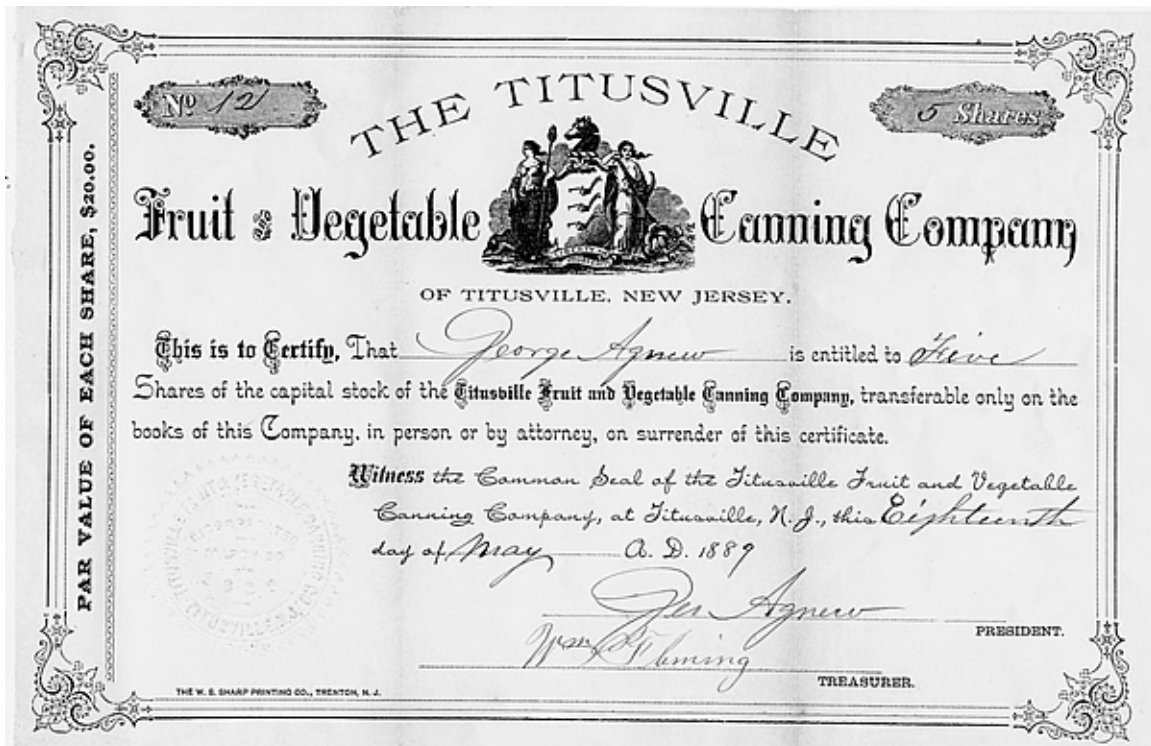 No 121
5 Shares
THE TITUSVILLE
Fruit & Vegetable Canning Company
OF TITUSVILLE, NEW JERSEY.
PAR VALUE OF EACH SHARE, $20.00.
This is to Certify, That George Agnew is entitled to Five
Shares of the capital stock of the Titusville Fruit and Vegetable Canning Company, transferable only on the
books of this Company, in person or by attorney, on surrender of this certificate.
Witness the Common Seal of the Titusville Fruit and Vegetable
Canning Company, at Titusville, N. J., this Eighteenth
day of May A. D. 1889
Geo Agnew
PRESIDENT.
Wm Fleming
TREASURER.
THE W. S. SHARP PRINTING CO., TRENTON, N. J.